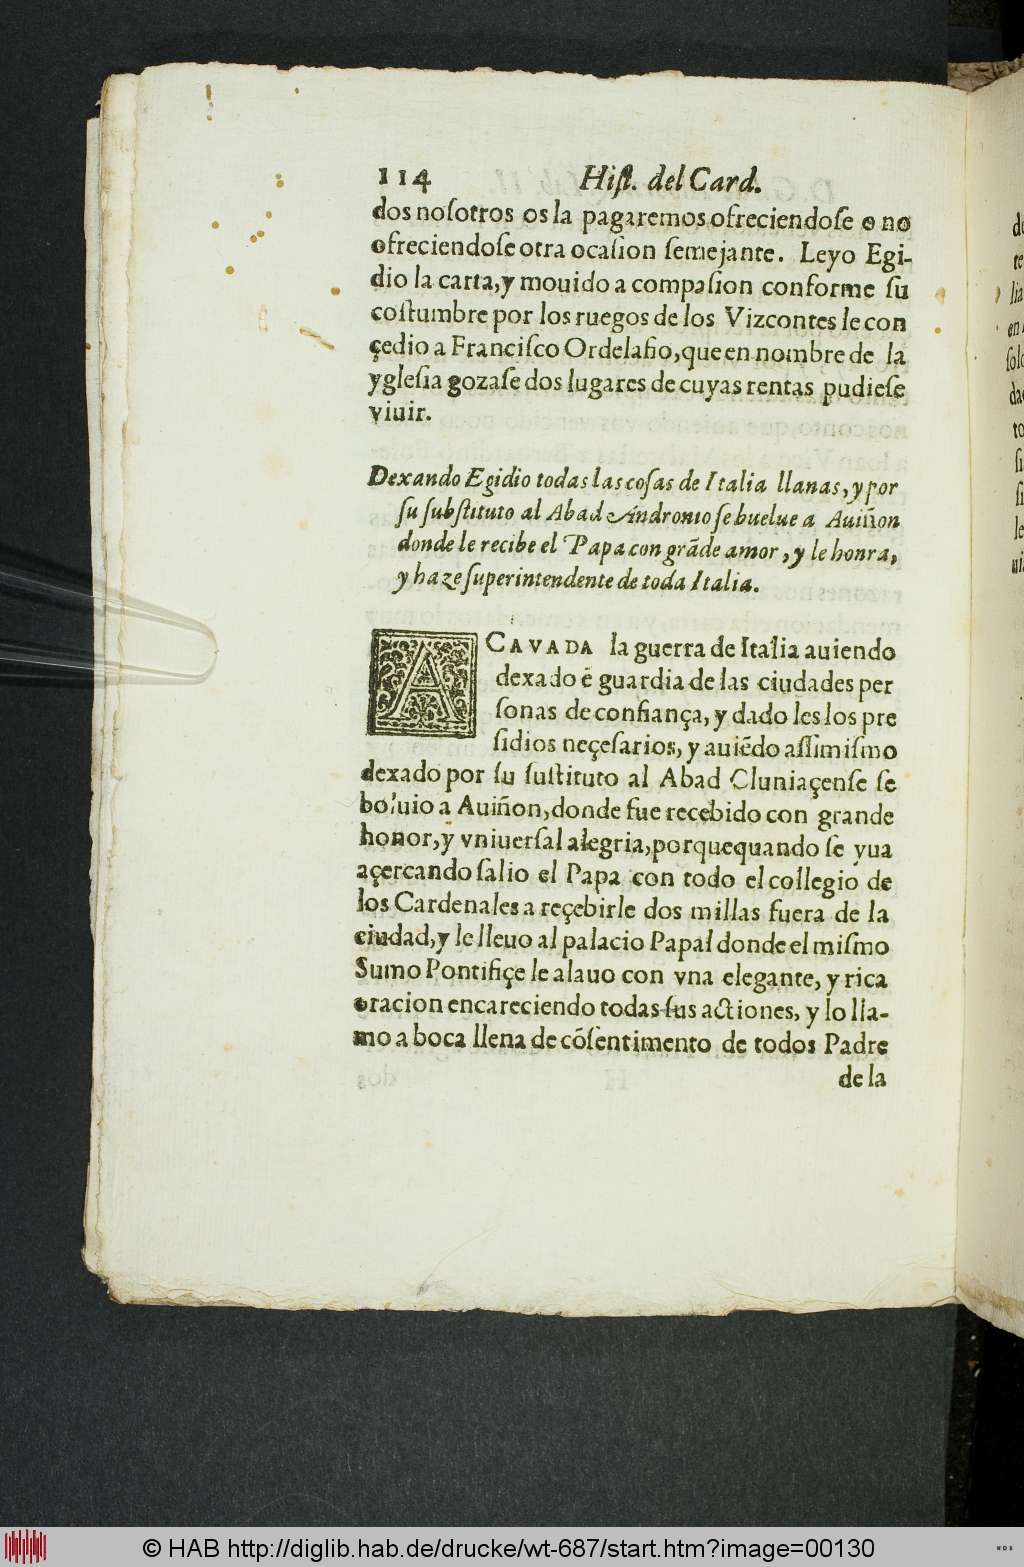 114 Hiſt. del Card.
dos noſotros os la pagaremos ofreciendoſe o no
ofreciendoſe otra ocaſion ſemejante. Leyo Egi-
dio la carta, y mouido a compaſion conforme ſu
coſtumbre por los ruegos de los Vizcontes le con
çedio a Franciſco Ordelafio, que en nombre de la
ygleſia gozaſe dos lugares de cuyas rentas pudieſe
viuir.
Dexando Egidio todas las coſas de Italia llanas, y por
ſu ſubſtituto al Abad Andronio ſe buelue a Auiñon
donde le recibe el Papa con grãde amor, y le honra,
y haze ſuperintendente de toda Italia.
ACAVADA la guerra de Italia auiendo
dexado ẽ guardia de las ciudades per
ſonas de confiança, y dado les los pre
ſidios neçeſarios, y auiẽdo aſſimiſmo
dexado por ſu ſuſtituto al Abad Cluniaçenſe ſe
boluio a Auiñon, donde fue recebido con grande
honor, y vniuerſal alegria, porque quando ſe yua
açercando ſalio el Papa con todo el collegio de
los Cardenales a reçebirle dos millas fuera de la
ciudad, y le lleuo al palacio Papal donde el miſmo
Sumo Pontifiçe le alauo con vna elegante, y rica
oracion encareciendo todas ſus actiones, y lo lla-
mo a boca llena de cõſentimento de todos Padre
de la
© HAB http://diglib.hab.de/drucke/wt-687/start.htm?image=00130